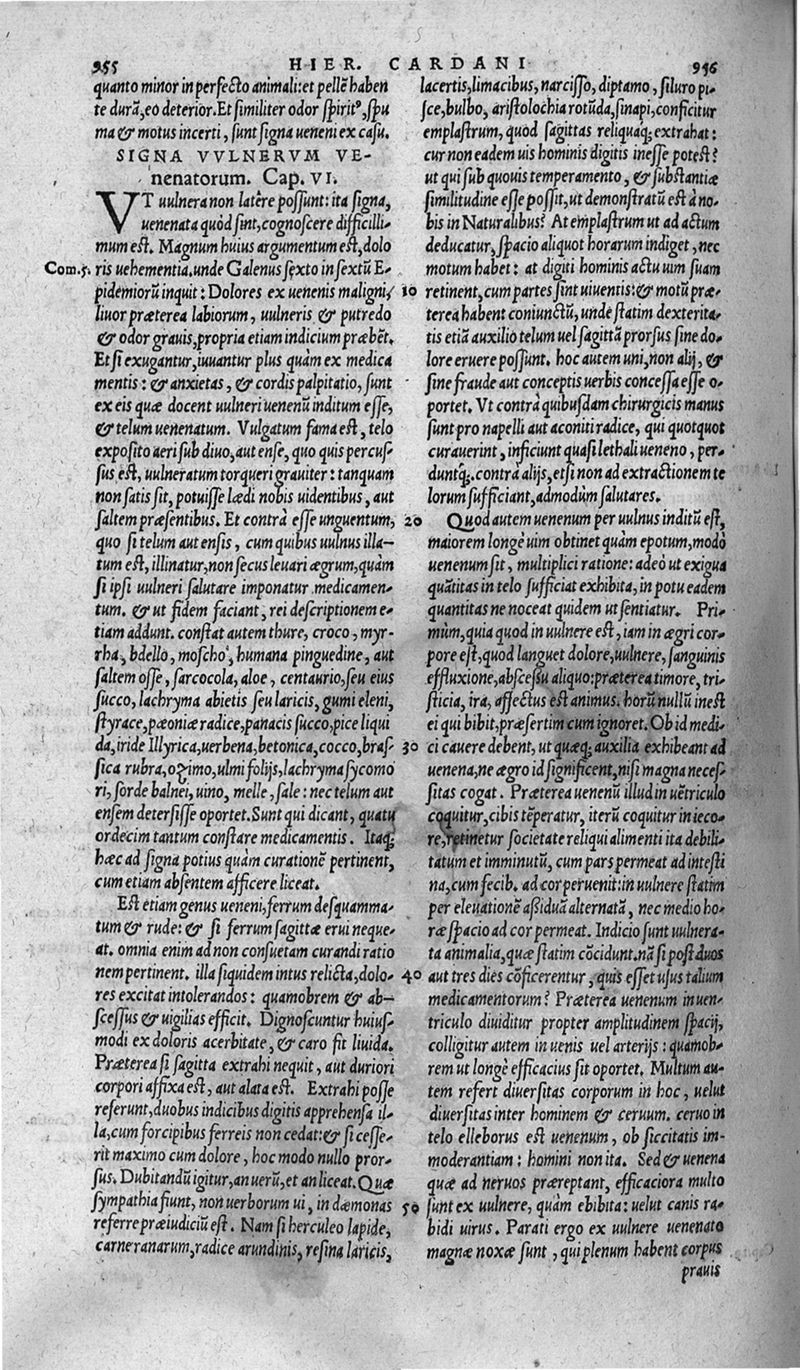 955
HIER. CARDANI
956
quanto minor in perfecto animali: et pellē haben
te durā, eo deterior. Et similiter odor spiritꝰ, spu
ma & motus incerti, sunt signa ueneni ex casu.
SIGNA VVLNERVM VE-
nenatorum. Cap. VI.
VT uulnera non latêre possunt: ita signa,
uenenata quòd sint, cognoscere difficilli-
mum est. Magnum huius argumentum est, dolo
Com.5. ris uehementia. unde Galenus sexto in sextū E-
pidemiorū inquit: Dolores ex uenenis maligni,
liuor præterea labiorum, uulneris, & putredo
& odor grauis, propria etiam indicium præbēt.
Et si exugantur, iuuantur plus quàm ex medica
mentis: & anxietas, & cordis palpitatio, sunt
ex eis quæ docent uulneri uenenū inditum esse,
& telum uenenatum. Vulgatum fama est, telo
exposito aeri sub diuo, aut ense, quo quis percus-
sus est, uulneratum torqueri grauiter: tanquam
non satis sit, potuisse lædi nobis uidentibus, aut
saltem præsentibus. Et contrà esse unguentum,
quo si telum aut ensis, cum quibus uulnus illa-
tum est, illinatur, non secus leuari ægrum, quàm
si ipsi uulneri salutare imponatur medicamen-
tum. & ut fidem faciant, rei descriptionem e-
tiam addunt. constat autem thure, croco, myr-
rha, bdello, moscho, humana pinguedine, aut
saltem osse, sarcocola, aloe, centaurio, seu eius
succo, lachryma abietis seu laricis, gumi eleni,
styrace, pæoniæ radice, panacis succo, pice liqui
da, iride Illyrica, uerbena, betonica, cocco, bras-
sica rubra, ozimo, ulmi folijs, lachryma sycomo
ri, sorde balnei, uino, melle, sale: nec telum aut
ensem detersisse oportet. Sunt qui dicant, quatu
ordecim tantum constare medicamentis. Itaq;
hæc ad signa potius quàm curationē pertinent,
cum etiam absentem afficere liceat.
Est etiam genus ueneni, ferrum desquamma-
tum & rude: & si ferrum sagittæ erui neque-
at. omnia enim ad non consuetam curandi ratio
nem pertinent. illa siquidem intus relicta, dolo-
res excitat intolerandos: quamobrem & ab-
scessus & uigilias efficit. Dignoscuntur huius-
modi ex doloris acerbitate, & caro fit liuida.
Præterea si sagitta extrahi nequit, aut duriori
corpori affixa est, aut alata est. Extrahi posse
referunt, duobus indicibus digitis apprehensa il-
la, cum forcipibus ferreis non cedat: & si cesse-
rit maximo cum dolore, hoc modo nullo pror-
sus. Dubitandū igitur, an uerū, et an liceat. Quæ
sympathia fiunt, non uerborum ui, in dæmonas
referre præiudiciū est. Nam si herculeo lapide,
carne ranarum, radice arundinis, resina laricis,
lacertis, limacibus, narcisso, diptamo, siluro pi-
sce, bulbo, aristolochia rotūda, sinapi, conficitur
emplastrum, quod sagittas reliquaq; extrahat:
cur non eadem uis hominis digitis inesse potest?
ut qui sub quouis temperamento, & substantiæ
similitudine esse possit, ut demonstratū est à no-
bis in Naturalibus? At emplastrum ut ad actum
deducatur, spacio aliquot horarum indiget, nec
motum habet: at digiti hominis actu uim suam
10 retinent, cum partes sint uiuentis: & motū præ-
terea habent coniunctū, unde statim dexterita-
tis etiā auxilio telum uel sagittā prorsus sine do-
lore eruere possunt. hoc autem uni, non alij, &
sine fraude aut conceptis uerbis concessa esse o-
portet. Vt contrà quibusdam chirurgicis manus
sunt pro napelli aut aconiti radice, qui quotquot
curauerint, inficiunt quasi lethali ueneno, per-
duntq;. contrà alijs, etsi non ad extractionem te
lorum sufficiant, admodùm salutares.
20 Quod autem uenenum per uulnus inditū est,
maiorem longè uim obtinet quàm epotum, modò
uenenum sit, multiplici ratione: adeò ut exigua
quātitas in telo sufficiat exhibita, in potu eadem
quantitas ne noceat quidem ut sentiatur. Pri-
mùm, quia quod in uulnere est, iam in ægri cor-
pore est, quod languet dolore, uulnere, sanguinis
effluxione, abscessu aliquo: præterea timore, tri-
sticia, ira, affectus est animus. horū nullū inest
ei qui bibit, præsertim cum ignoret. Ob id medi-
30 ci cauere debent, ut quæq; auxilia exhibeant ad
uenena, ne ægro id significent, nisi magna neces-
sitas cogat. Præterea uenenū illud in uētriculo
coquitur, cibis tēperatur, iterū coquitur in ieco-
re, retinetur societate reliqui alimenti ita debili-
tatum et imminutū, cum pars permeat ad intesti
na, cum fecib. ad cor peruenit: in uulnere statim
per eleuationē aßiduā alternatā, nec medio ho-
ræ spacio ad cor permeat. Indicio sunt uulnera-
ta animalia, quæ statim cōcidunt. nā si post duos
40 aut tres dies cōficerentur, quis esset usus talium
medicamentorum? Præterea uenenum in uen-
triculo diuiditur propter amplitudinem spacij,
colligitur autem in uenis uel arterijs: quamob-
rem ut longè efficacius sit oportet. Multum au-
tem refert diuersitas corporum in hoc, uelut
diuersitas inter hominem & ceruum. ceruo in
telo elleborus est uenenum, ob siccitatis im-
moderantiam: homini non ita. Sed & uenena
quæ ad neruos præreptant, efficaciora multo
50 sunt ex uulnere, quàm ebibita: uelut canis ra-
bidi uirus. Parati ergo ex uulnere uenenato
magnæ noxæ sunt, qui plenum habent corpus
prauis